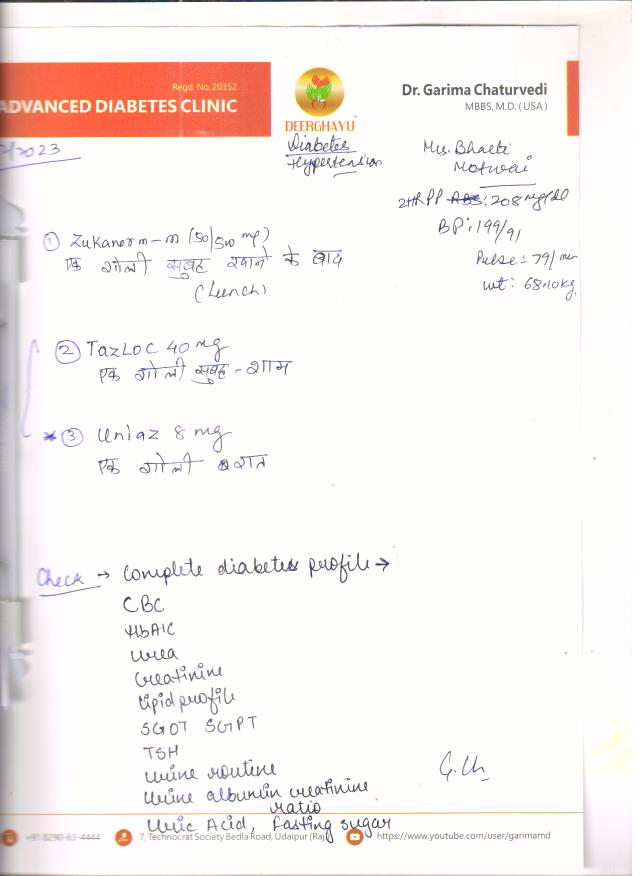 Regd. No. 20352
ADVANCED DIABETES CLINIC
DEERGHAYU
Dr. Garima Chaturvedi
MBBS, M.D. ( USA )
/2023
Diabetes
Hypertension
Mrs. Bharti
Motwai
2HR PP RBS: 208 mg/dl
BP: 199/91
Pulse: 79/min
wt: 68.10kg
① Zukanorm-m (50/500 mg)
एक गोली सुबह खाने के बाद
(Lunch)
② TazLoc 40 mg
एक गोली सुबह - शाम
③ Uniaz 8 mg
एक गोली रात
Check → Complete diabetes profile →
CBC
HbA1C
Urea
Creatinine
Lipid profile
SGOT SGPT
TSH
Urine routine
Urine albumin creatinine
ratio
Uric Acid, Fasting sugar
+91 8290-63-4444 7, Technocrat Society Bedla Road, Udaipur (Raj.) https://www.youtube.com/user/garimamd